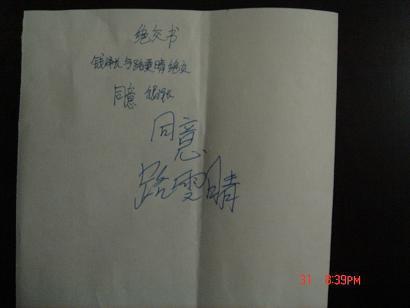 绝交书
钱泽长与路雯晴绝交
同意
同意
路雯晴
31 8:39PM